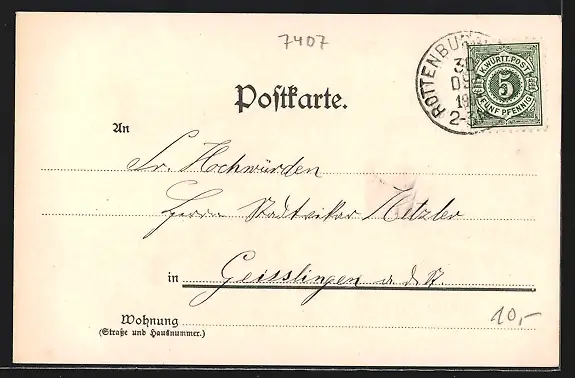 7407
ROTTENBU
30
DE
2-3
K.WÜRTT.POST
5
FÜNF PFENNIG
Postkarte.
An
Sr. Hochwürden
Herrn Stadtvikar Metzler
in Geisslingen a. d. St.
Wohnung
(Straße und Hausnummer.)
10,-